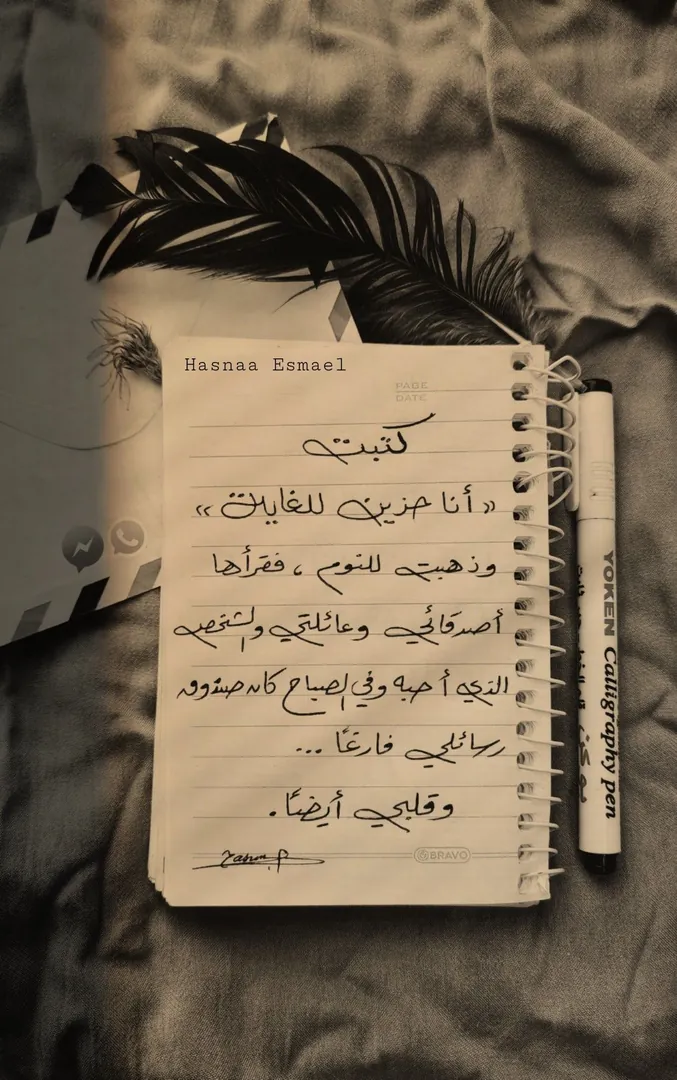 Hasnaa Esmael
PAGE
DATE
كتبت
« أنا حزين للغاية »
وذهبت للنوم ، فقرأها
أصدقائي وعائلتي والشخص
الذي أحبه وفي الصباح كان صندوق
رسائلي فارغًا ...
وقلبي أيضًا .
BRAVO
YOKEN Calligraphy pen